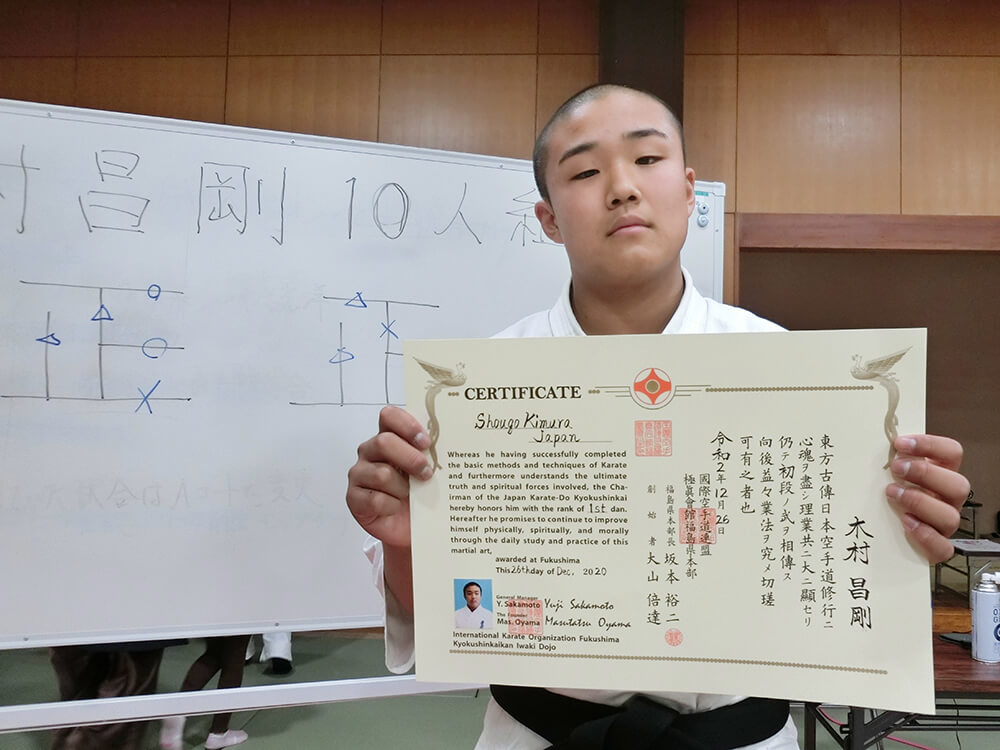 村昌剛 10人組
CERTIFICATE
Shougo Kimura
Japan
Whereas he having successfully completed
the basic methods and techniques of Karate
and furthermore understands the ultimate
truth and spiritual forces involved, the Cha-
irman of the Japan Karate-Do Kyokushinkai
hereby honors him with the rank of 1st dan.
Hereafter he promises to continue to improve
himself physically, spiritually, and morally
through the daily study and practice of this
martial art,
awarded at Fukushima
This 26th day of Dec, 2020
General Manager
Y. Sakamoto Yuji Sakamoto
The Founder
Mas. Oyama Masutatsu Oyama
International Karate Organization Fukushima
Kyokushinkaikan Iwaki Dojo
木村昌剛
東方古傳日本空手道修行ニ
心魂ヲ盡シ理業共ニ大ニ顕セリ
仍テ初段ノ武ヲ相傳ス
向後益々業法ヲ究メ切瑳
可有之者也
令和2年12月26日
國際空手道連盟
極眞會館福島県本部
福島県本部長 坂本裕二
創始者 大山倍達